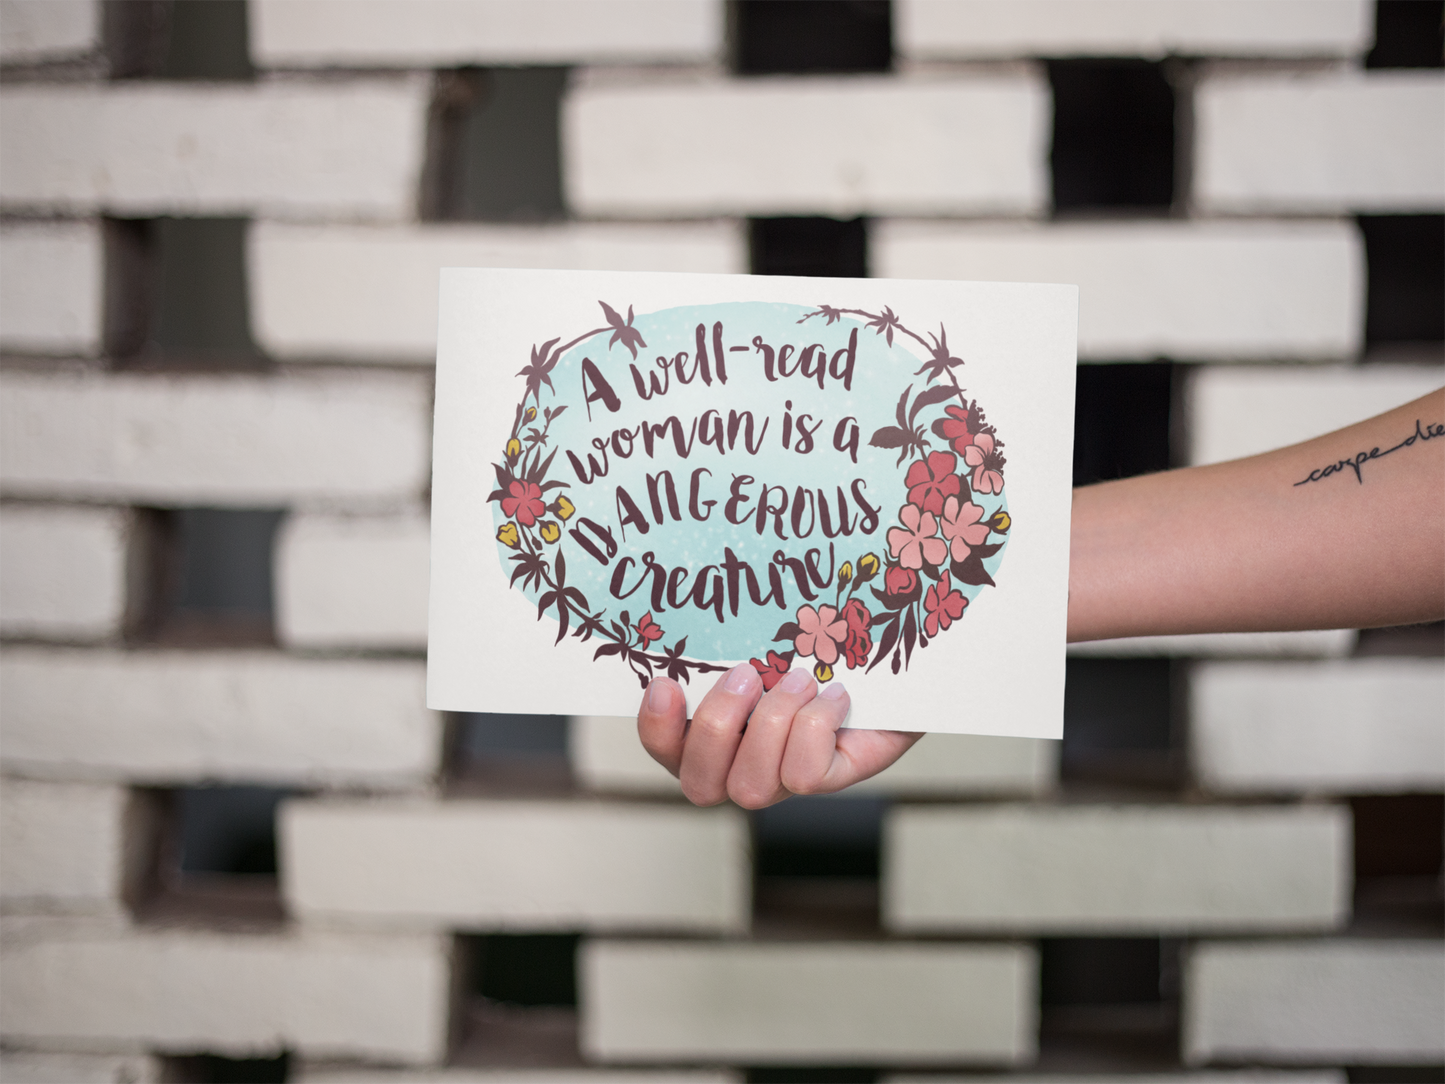 A well-read
woman is a
DANGEROUS
creature
carpe die